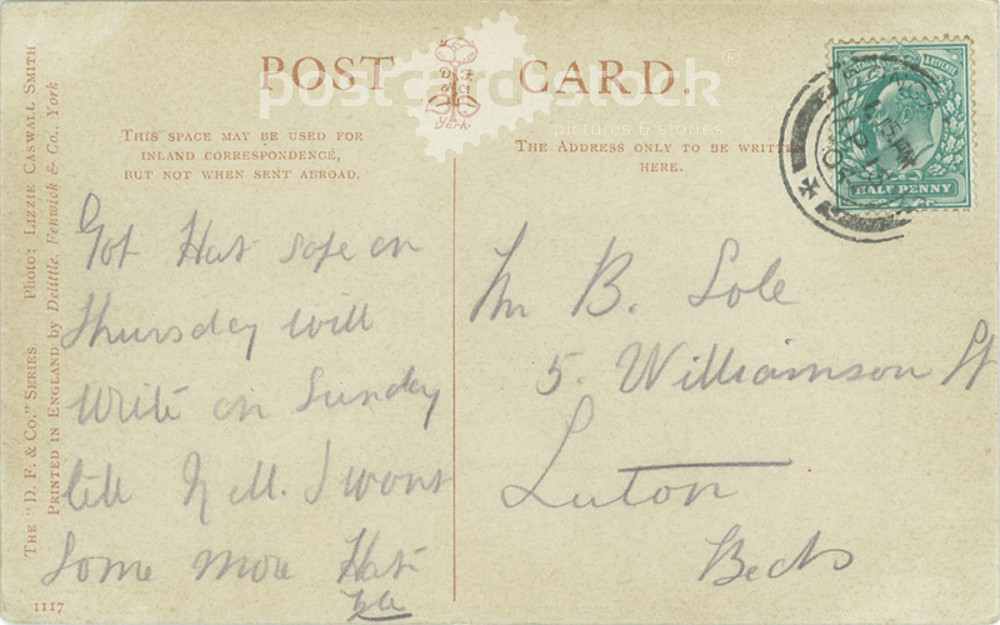 POST CARD.
postcard stock®
pictures & stories
D F & Co
York.
THIS SPACE MAY BE USED FOR
INLAND CORRESPONDENCE,
BUT NOT WHEN SENT ABROAD.
THE ADDRESS ONLY TO BE WRITTEN
HERE.
HALF PENNY
Got Hat safe on
Thursday will
Write on Sunday
tell M. I want
Some more Hats
Mr B. Sole
5. Williamson St
Luton
Beds
THE "D. F. & CO." SERIES. Photo: LIZZIE CASWALL SMITH
PRINTED IN ENGLAND by Delittle, Fenwick & Co., York
1117